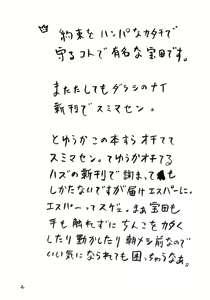 約束をハンパなカタチで
守るコトで有名な宝田です。
またたしてもダラシのナイ
新刊でスミマセン。
とゆうかこの本すらオチてて
スミマセン。てゆうかオチてる
ハズの新刊で謝まっても
しかたないですが届けエスパーに。
エスパーってスゲェ。まぁ宝田も
手も触れずにちんこをカタく
したり動かしたり朝メシ前なので
いい気になられても困っちゃうなぁ。
4